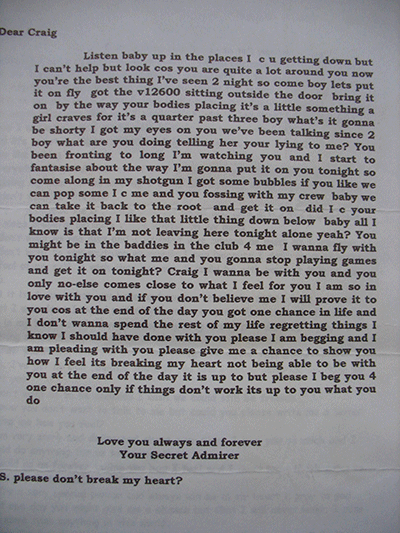 Dear Craig
Listen baby up in the places I c u getting down but
I can't help but look cos you are quite a lot around you now
you're the best thing I've seen 2 night so come boy lets put
it on fly got the v12600 sitting outside the door bring it
on by the way your bodies placing it's a little something a
girl craves for it's a quarter past three boy what's it gonna
be shorty I got my eyes on you we've been talking since 2
boy what are you doing telling her your lying to me? You
been fronting to long I'm watching you and I start to
fantasise about the way I'm gonna put it on you tonight so
come along in my shotgun I got some bubbles if you like we
can pop some I c me and you fossing with my crew baby we
can take it back to the root and get it on did I c your
bodies placing I like that little thing down below baby all I
know is that I'm not leaving here tonight alone yeah? You
might be in the baddies in the club 4 me I wanna fly with
you tonight so what me and you gonna stop playing games
and get it on tonight? Craig I wanna be with you and you
only no-else comes close to what I feel for you I am so in
love with you and if you don't believe me I will prove it to
you cos at the end of the day you got one chance in life and
I don't wanna spend the rest of my life regretting things I
know I should have done with you please I am begging and I
am pleading with you please give me a chance to show you
how I feel its breaking my heart not being able to be with
you at the end of the day it is up to but please I beg you 4
one chance only if things don't work its up to you what you
do
Love you always and forever
Your Secret Admirer
S. please don't break my heart?